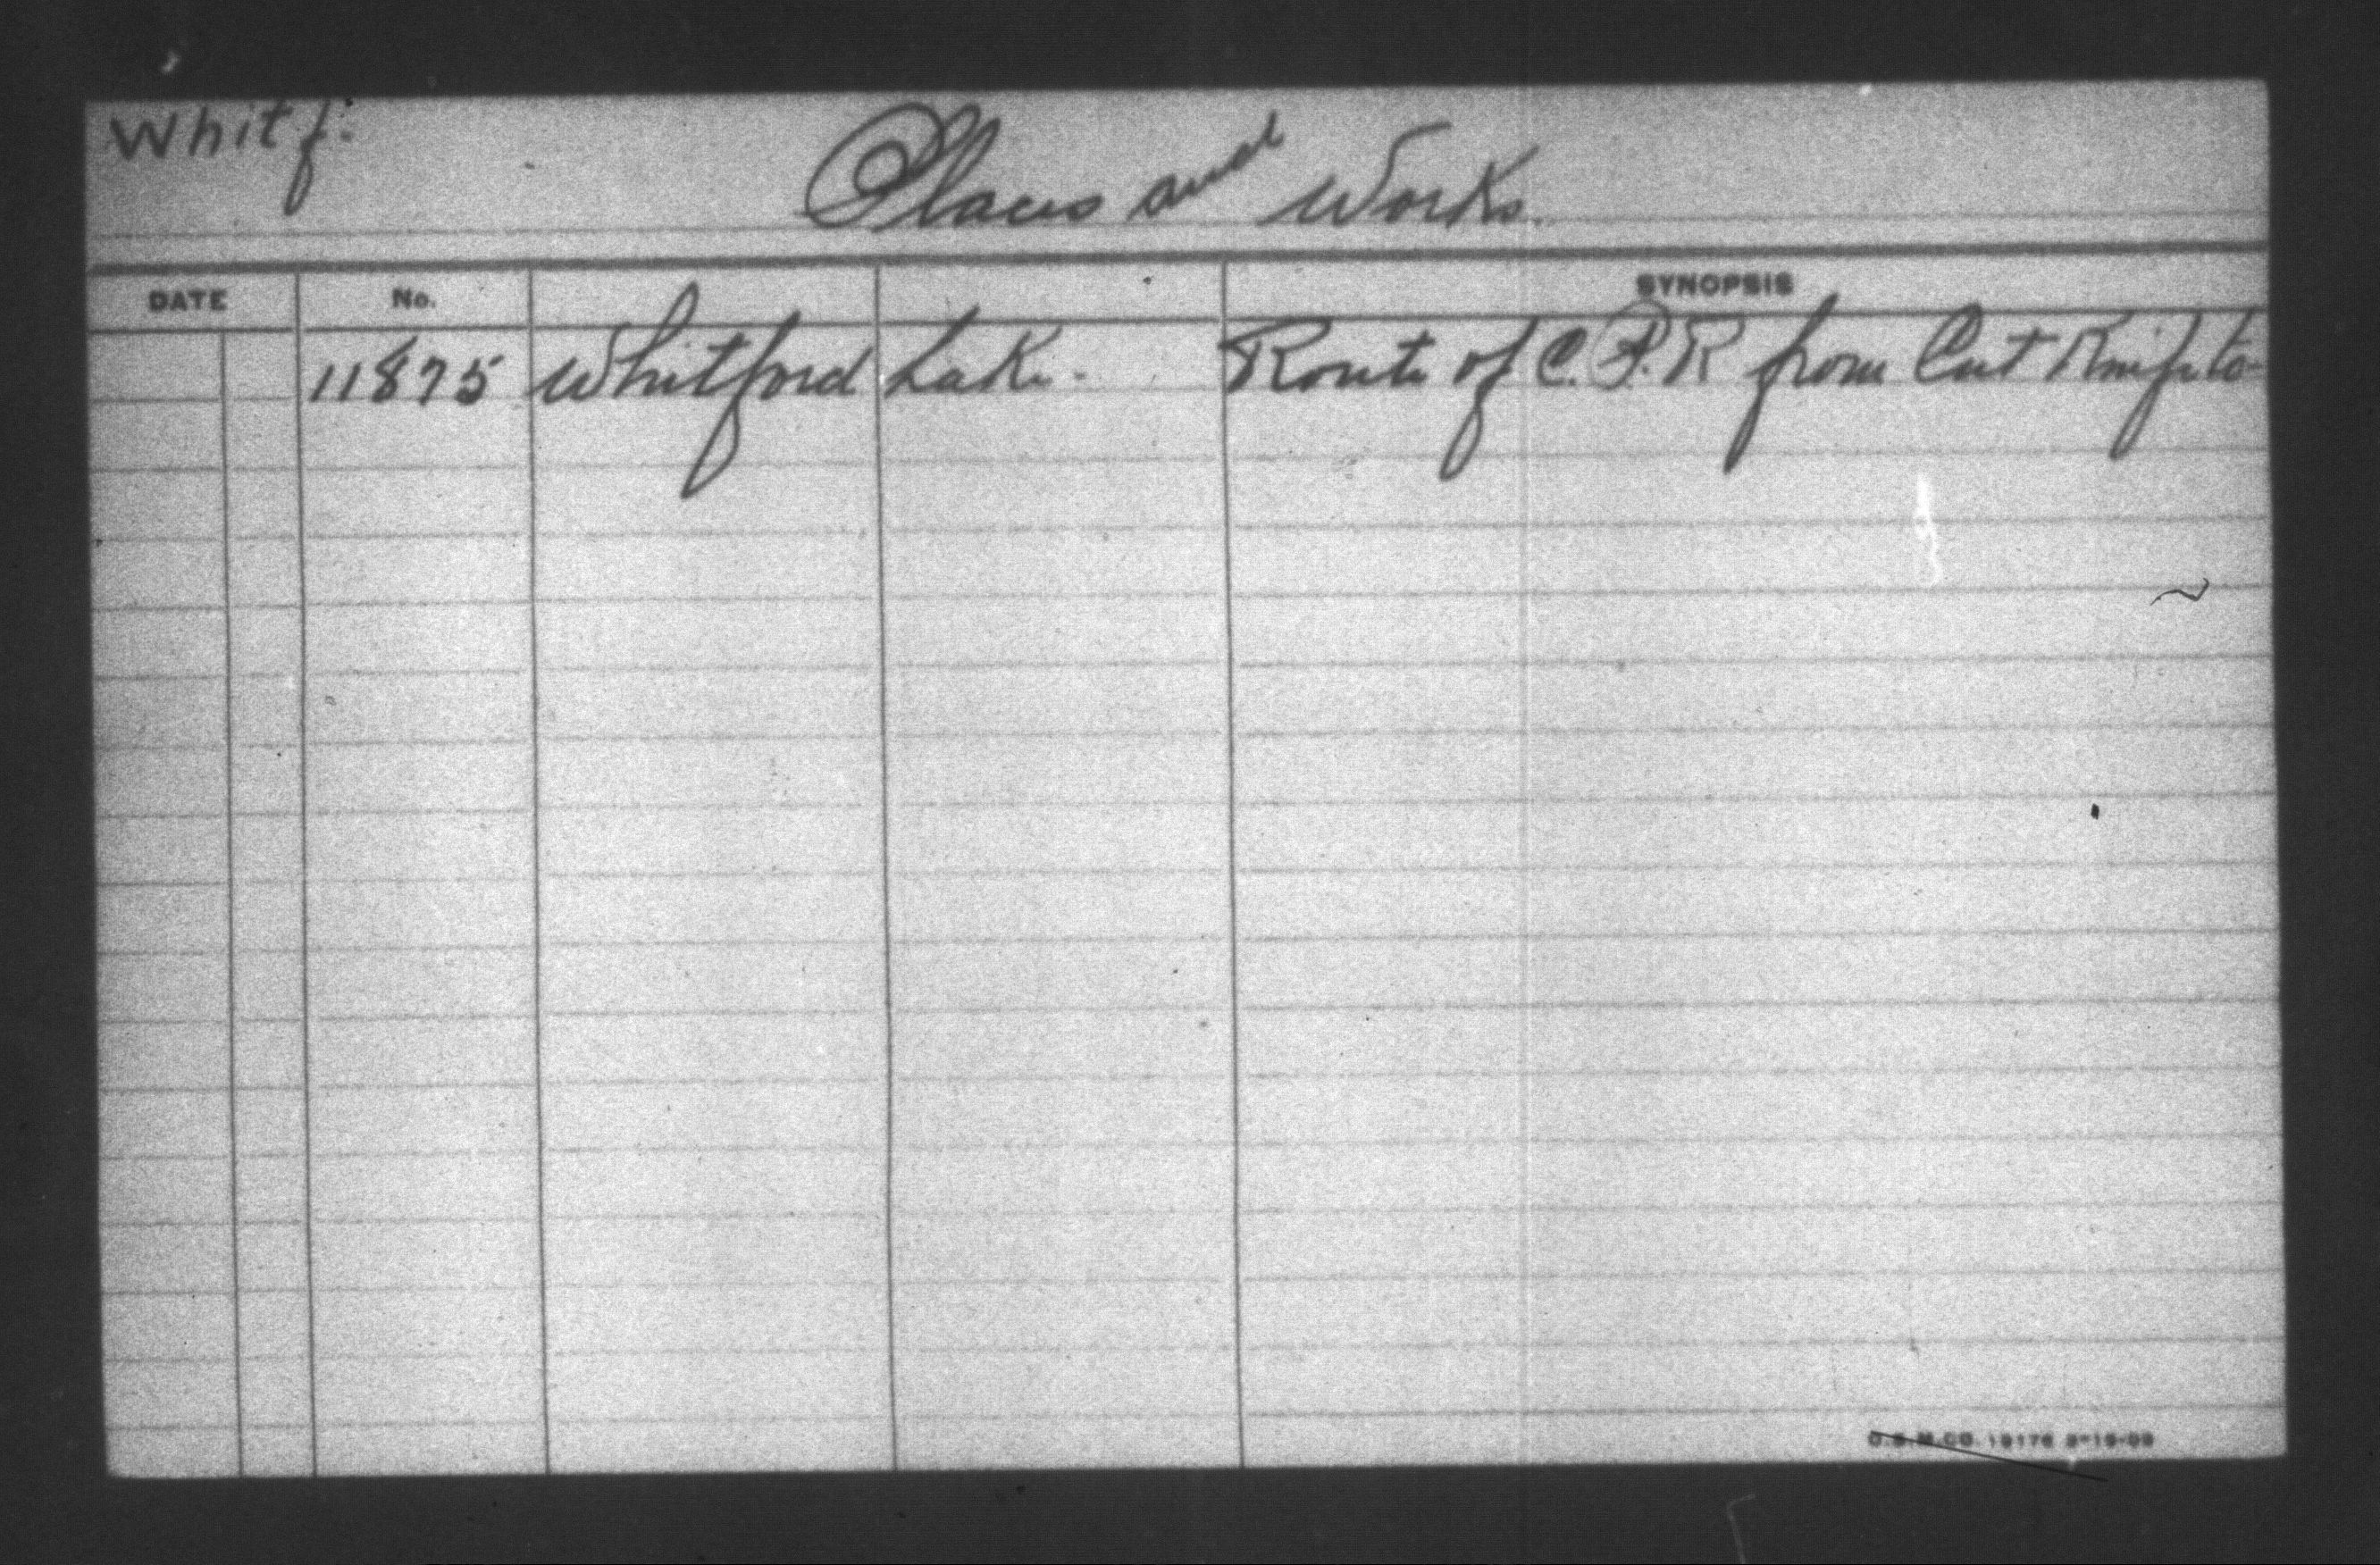 Whitf.
Places and Works.
DATE No. SYNOPSIS
11875 Whitford Lake. Route of C.P.R from Cut Knife to
O.S.M.CO. 19176